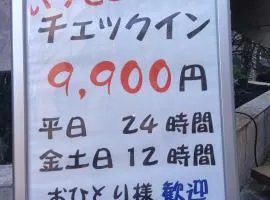 チェックイン
9,900円
平日 24時間
金土日12時間
おひとり様 歓迎